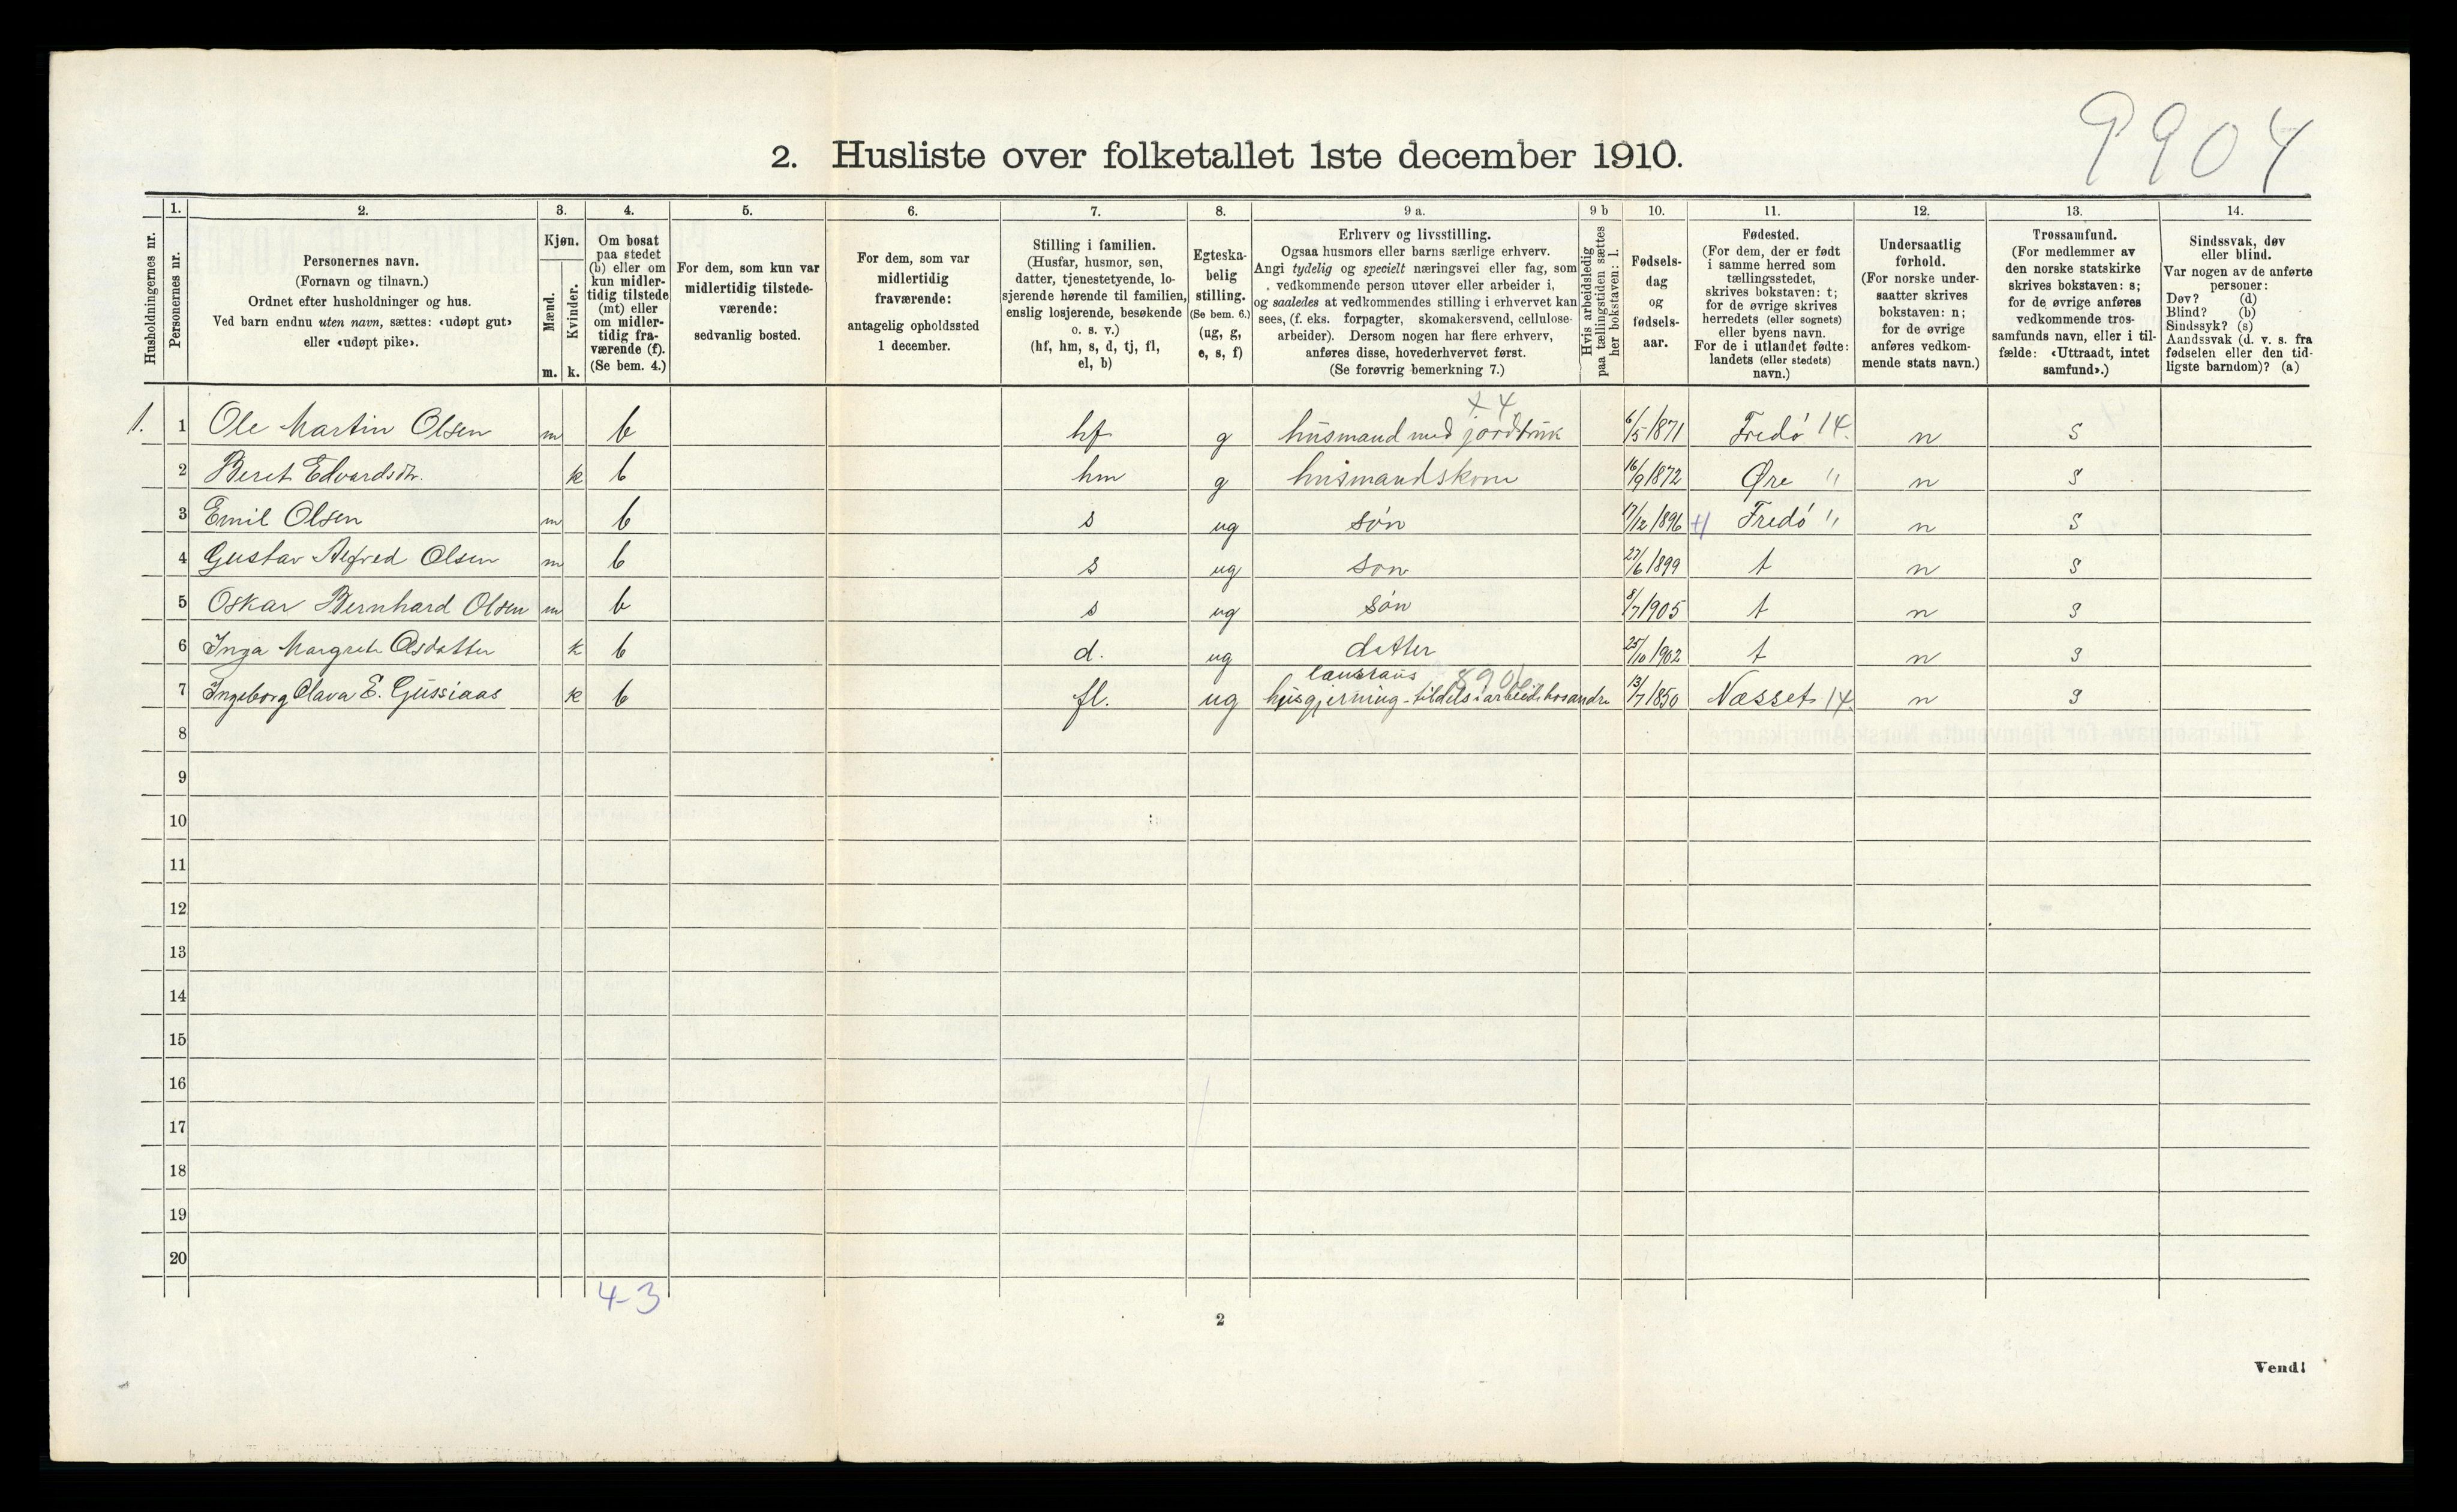 9904
2. Husliste over folketallet 1ste december 1910.
Husholdningernes nr.
1. Personernes nr.
2.
Personernes navn.
(Fornavn og tilnavn.)
Ordnet efter husholdninger og hus.
Ved barn endnu uten navn, sættes: «udøpt gut»
eller «udøpt pike».
3.
Kjøn.
Mænd. Kvinder.
m. k.
4.
Om bosat
paa stedet
(b) eller om
kun midler-
tidig tilstede
(mt) eller
om midler-
tidig fra-
værende (f).
(Se bem. 4.)
5.
For dem, som kun var
midlertidig tilstede-
værende:
sedvanlig bosted.
6.
For dem, som var
midlertidig
fraværende:
antagelig opholdssted
1 december.
7.
Stilling i familien.
(Husfar, husmor, søn,
datter, tjenestetyende, lo-
sjerende hørende til familien,
enslig losjerende, besøkende
o. s. v.)
(hf, hm, s, d, tj, fl,
el, b)
8.
Egteska-
belig
stilling.
(Se bem. 6.)
(ug, g,
e, s, f)
9 a.
Erhverv og livsstilling.
Ogsaa husmors eller barns særlige erhverv.
Angi tydelig og specielt næringsvei eller fag, som
vedkommende person utøver eller arbeider i,
og saaledes at vedkommendes stilling i erhvervet kan
sees, (f. eks. forpagter, skomakersvend, cellulose-
arbeider). Dersom nogen har flere erhverv,
anføres disse, hovederhvervet først.
(Se forøvrig bemerkning 7.)
9 b
Hvis arbeidsledig
paa tællingstiden sættes
her bokstaven: l.
10.
Fødsels-
dag
og
fødsels-
aar.
11.
Fødested.
(For dem, der er født
i samme herred som
tællingsstedet,
skrives bokstaven: t;
for de øvrige skrives
herredets (eller sognets)
eller byens navn.
For de i utlandet fødte:
landets (eller stedets)
navn.)
12.
Undersaatlig
forhold.
(For norske under-
saatter skrives
bokstaven: n;
for de øvrige
anføres vedkom-
mende stats navn.)
13.
Trossamfund.
(For medlemmer av
den norske statskirke
skrives bokstaven: s;
for de øvrige anføres
vedkommende tros-
samfunds navn, eller i til-
fælde: «Uttraadt, intet
samfund».)
14.
Sindssvak, døv
eller blind.
Var nogen av de anførte
personer:
Døv? (d)
Blind? (b)
Sindssyk? (s)
Aandssvak (d. v. s. fra
fødselen eller den tid-
ligste barndom)? (a)
x 4
1. 1 Ole Martin Olsen m b hf g husmand med jordbruk 6/5 1871 Fredø 14. n s
2 Beret Edvardsdtr. k b hm g husmandskone 16/9 1872 Øre " n s
3 Emil Olsen m b s ug søn 17/12 1896 Fredø " n s
4 Gustav Alfred Olsen m b s ug søn 27/6 1899 t n s
5 Oskar Bernhard Olsen m b s ug søn 8/7 1905 t n s
6 Inga Margrete Olsdatter k b d. ug datter 25/10 1902 t n s
7 Ingeborg Olava E. Gussiaas k b fl. ug husgjerning - tildels i arbeide hos andre 13/7 1850 Næsset 14. n s
8
9
10
11
12
13
14
15
16
17
18
19
20
4-3
2
Vend!